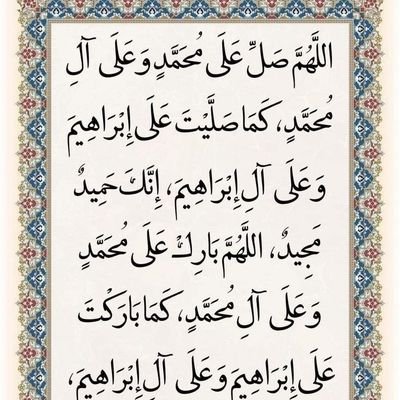 اللَّهُمَّ صَلِّ عَلَى مُحَمَّدٍ وَعَلَى آلِ
مُحَمَّدٍ، كَمَا صَلَّيْتَ عَلَى إِبْرَاهِيمَ
وَعَلَى آلِ إِبْرَاهِيمَ، إِنَّكَ حَمِيدٌ
مَجِيدٌ، اللَّهُمَّ بَارِكْ عَلَى مُحَمَّدٍ
وَعَلَى آلِ مُحَمَّدٍ، كَمَا بَارَكْتَ
عَلَى إِبْرَاهِيمَ وَعَلَى آلِ إِبْرَاهِيمَ،